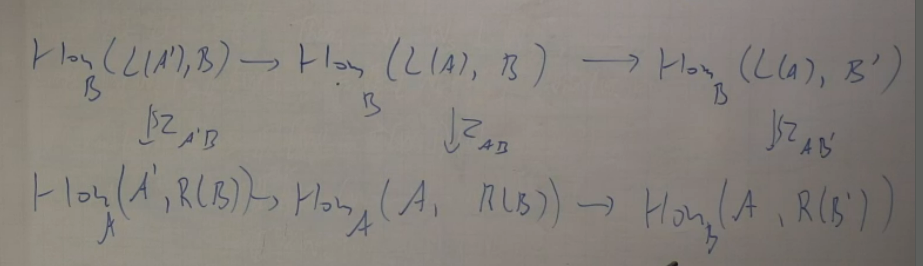 Hom_B(L(A'), B) → Hom_B(L(A), B) → Hom_B(L(A), B')
↓≀ τ_{A'B} ↓ τ_{AB} ↓≀ τ_{AB'}
Hom_A(A', R(B)) → Hom_A(A, R(B)) → Hom_B(A, R(B'))